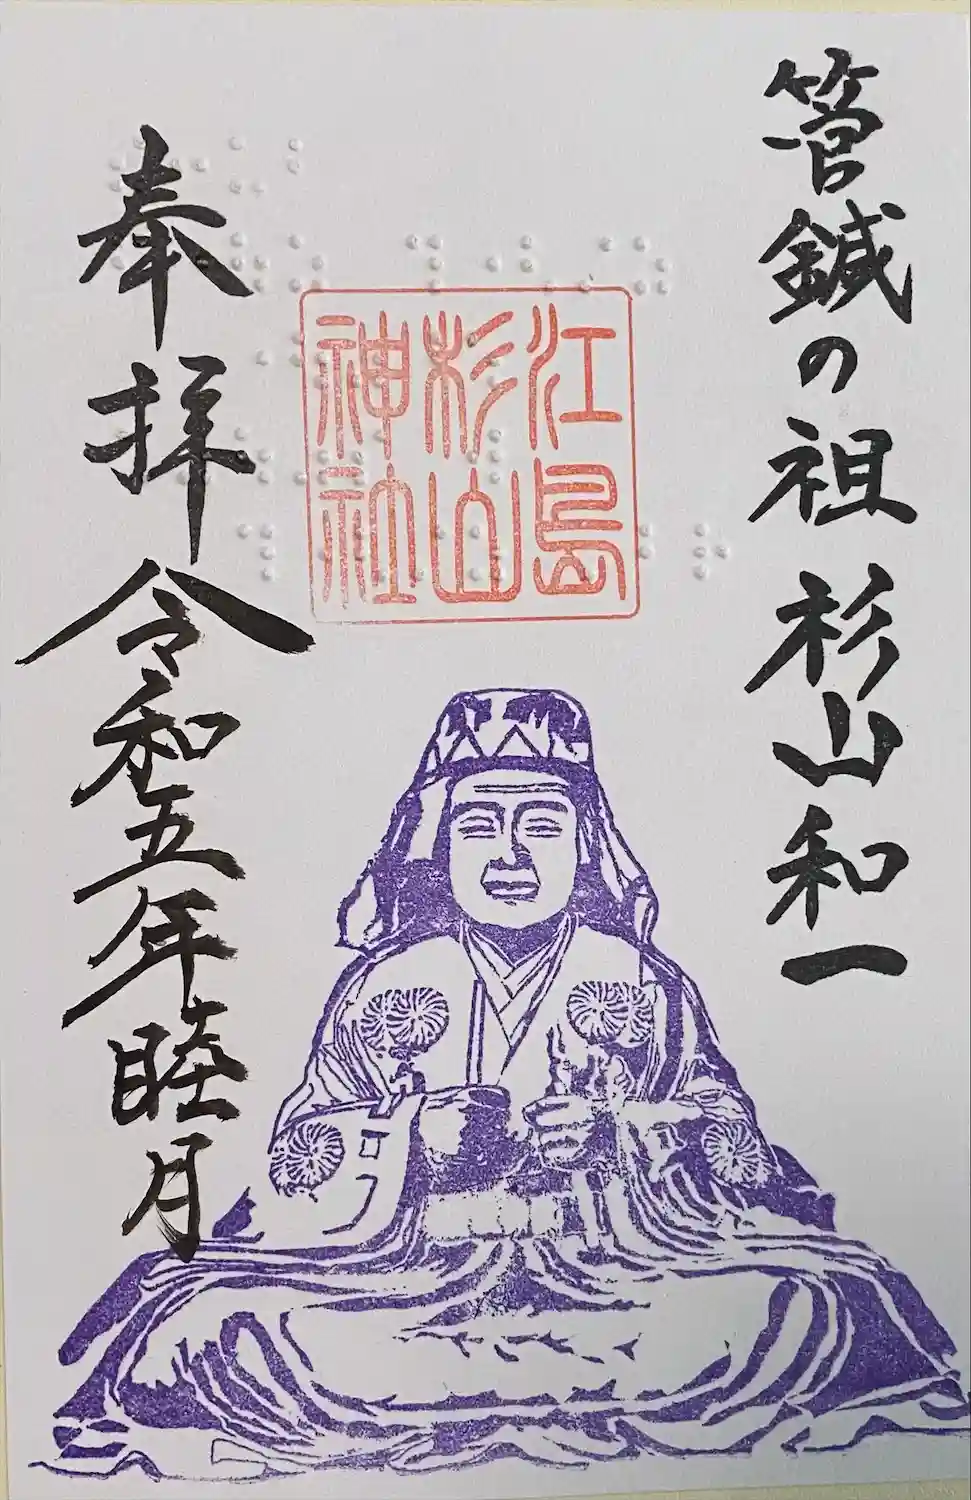 管鍼の祖 杉山和一
江島
杉山
神社
奉拝
令和五年睦月